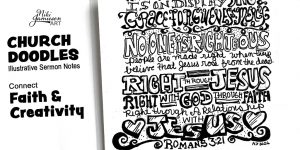 Niki Yamieson
ART
CHURCH
DOODLES
Illustrative Sermon Notes
Connect
Faith &
Creativity
IS ON DISPLAY SINCE
GRACE FORGIVENESS MERCY
NO ONE IS RIGHTEOUS
People are made right when they
believe that Jesus rose from the dead
RIGHT THROUGH JESUS
RIGHT WITH GOD THROUGH FAITH
Right through a Relationship
WITH
JESUS
ROMANS 3:21